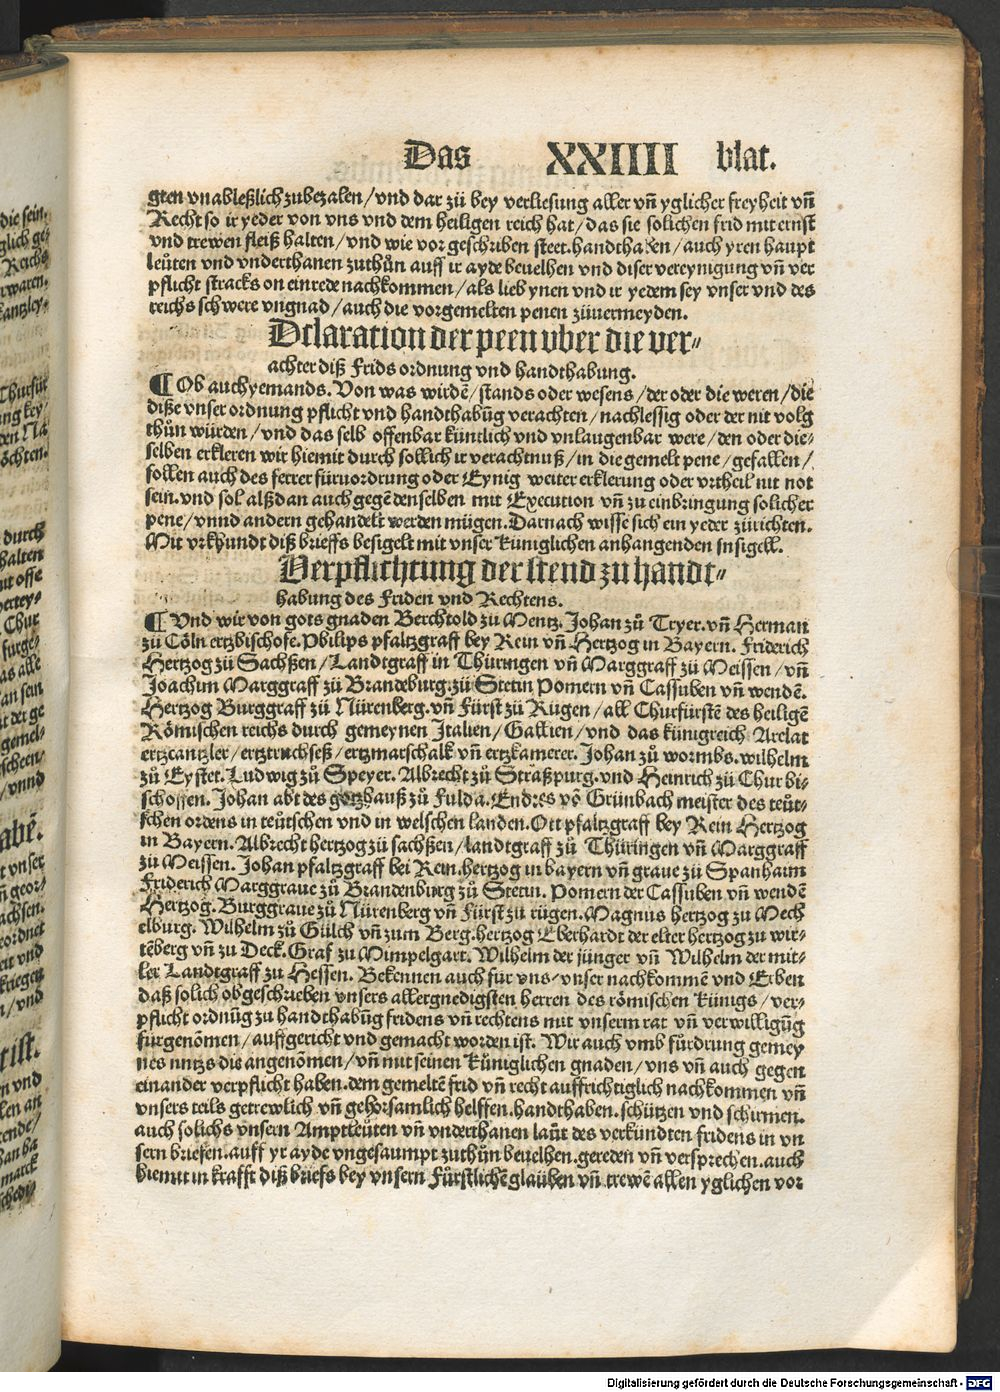 Das XXIIII blat.
gten vnableßlich zubezalen / vnd dar zů bey verliesung aller vñ yglicher freyheit vñ
Recht so ir yeder von vns vnd dem heiligen reich hat / das sie solichen frid mit ernst
vnd trewen fleiß halten / vnd wie vor geschriben steet. handthaben / auch yren haupt
leüten vnd vnderthanen zuthůn auff ir ayde beuelhen vnd diser vereynigung vñ ver
pflicht stracks on einrede nachkommen / als lieb ynen vnd ir yedem sey vnser vnd des
reichs schwere vngnad / auch die vorgemelten penen zůuermeyden.
Dclaration der peen vber die ver⸗
achter diß Frids ordnung vnd handthabung.
¶ Ob auch yemands. Von was wirdē / stands oder wesens / der oder die weren / die
diße vnser ordnung pflicht vnd handthabūg verachten / nachlessig oder der nit volg
thůn würden / vnd das selb offenbar küntlich vnd vnlaugenbar were / den oder die⸗
selben erkleren wir hiemit durch sollich ir verachtnuß / in die gemelt pene / gefallen /
sollen auch des ferrer fürvordrung oder Eynig weiter erklerung oder vrtheil nit not
sein. vnd sol alßdan auch gegē denselben mit Execution vñ zu einbringung solicher
pene / vnnd andern gehandelt werden mügen. Darnach wisse sich ein yeder zůrichten.
Mit vrkhundt diß brieffs besigelt mit vnser küniglichen anhangenden Insigell.
Verpflichtung der stend zu handt⸗
habung des Friden vnd Rechtens.
¶ Vnd wir von gots gnaden Berchtold zu Mentz. Johan zů Tryer. vñ Herman
zu Cöln ertzbischofe. Philips pfaltzgraff bey Rein vñ Hertzog in Bayern. Friderich
Hertzog zů Sachßen / Landtgraff in Thüringen vñ Marggraff zů Meissen / vñ
Joachim Marggraff zů Brandeburg. zů Stetin Pomern vñ Cassuben vñ wendē.
Hertzog Burggraff zů Nürenberg. vñ Fürst zů Rugen / all Churfürstē des heiligē
Römischen reichs durch gemeynen Italien / Gallien / vnd das künigreich Arelat
ertzcantzler / ertztruchseß / ertzmarschalk vñ ertzkamerer. Johan zů wormbs. wilhelm
zů Eystet. Ludwig zů Speyer. Albrecht zů Straßpurg. vnd Heinrich zů Chur bi⸗
schoffen. Johan abt des gotzhauß zů Fulda. Endres vō Grünbach meister des teüt⸗
schen ordens in teütschen vnd in welschen landen. Ott pfaltzgraff bey Rein Hertzog
in Bayern. Albrecht hertzog zu sachßen / landtgraff zů Thüringen vñ Marggraff
zů Meissen. Johan pfaltzgraff bei Rein. hertzog in bayern vñ graue zů Spanhaim
Friderich Marggraue zů Brandenburg zů Stetin. Pomern der Cassuben vñ wendē
Hertzog. Burggraue zů Nürenberg vñ Fürst zu rügen. Magnus hertzog zu Mech
elburg. Wilhelm zů Gülch vñ zum Berg. hertzog Eberhardt der elter hertzog zu wir⸗
tēberg vñ zu Deck. Graf zu Mimpelgart. Wilhelm der jünger vñ Wilhelm der mit⸗
ler Landtgraff zu Hessen. Bekennen auch für vns. vnser nachkommē vnd Erben
daß solich obgeschrieben vnsers allergnedigsten herren des römischen künigs / ver⸗
pflicht ordnūg zu handthabūg fridens vñ rechtens mit vnserm rat vñ verwilligūg
fürgenōmen / auffgericht vnd gemacht worden ist. Wir auch vmb fürdrung gemey
nes nutzs die angenōmen / vñ mit seinen küniglichen gnaden / vns vñ auch gegen
einander verpflicht haben. dem gemeltē frid vñ recht auffrichtiglich nachkommen vñ
vnsers teils getrewlich vñ gehorsamlich helffen. handthaben. schützen vnd schirmen.
auch solichs vnsern Amptleüten vñ vnderthanen laüt des verkündten fridens in vn
sern briefen. auff yr ayde vngesaumpt zuthůn beuelhen. gereden vñ versprechen. auch
hiemit in krafft diß briefs bey vnsern Fürstlichē glaüben vñ trewē allen yglichen vor
Digitalisierung gefördert durch die Deutsche Forschungsgemeinschaft - DFG